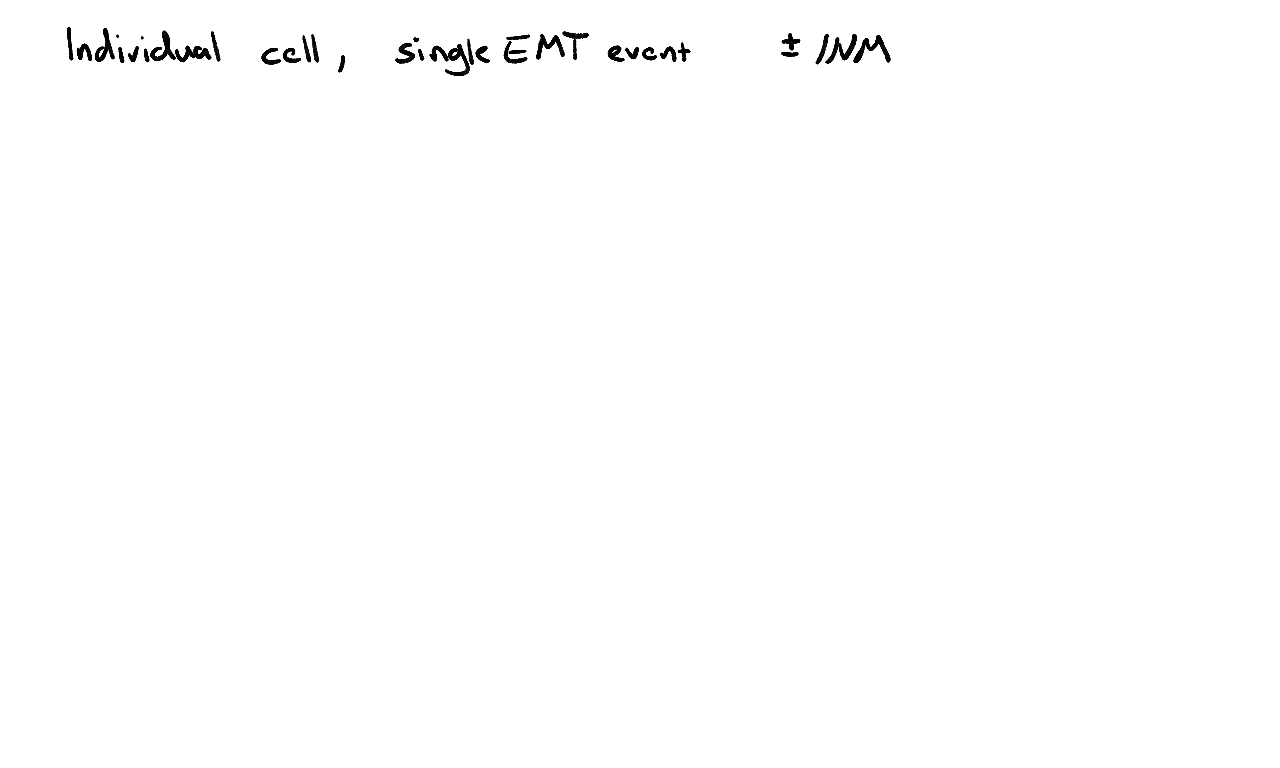 Individual cell, single EMT event ± INM